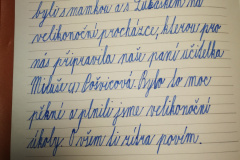 byli s mamkou a s Lukáškem na
velikonoční procházce, kterou pro
nás připravila naše paní učitelka
Miluše Bošvicová. Bylo to moc
pěkné a plnili jsme velikonoční
úkoly. O všem ti zítra povím.